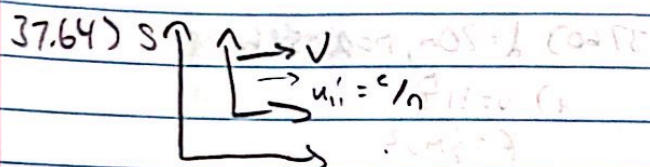 37.64) S
V
u|| = c/n